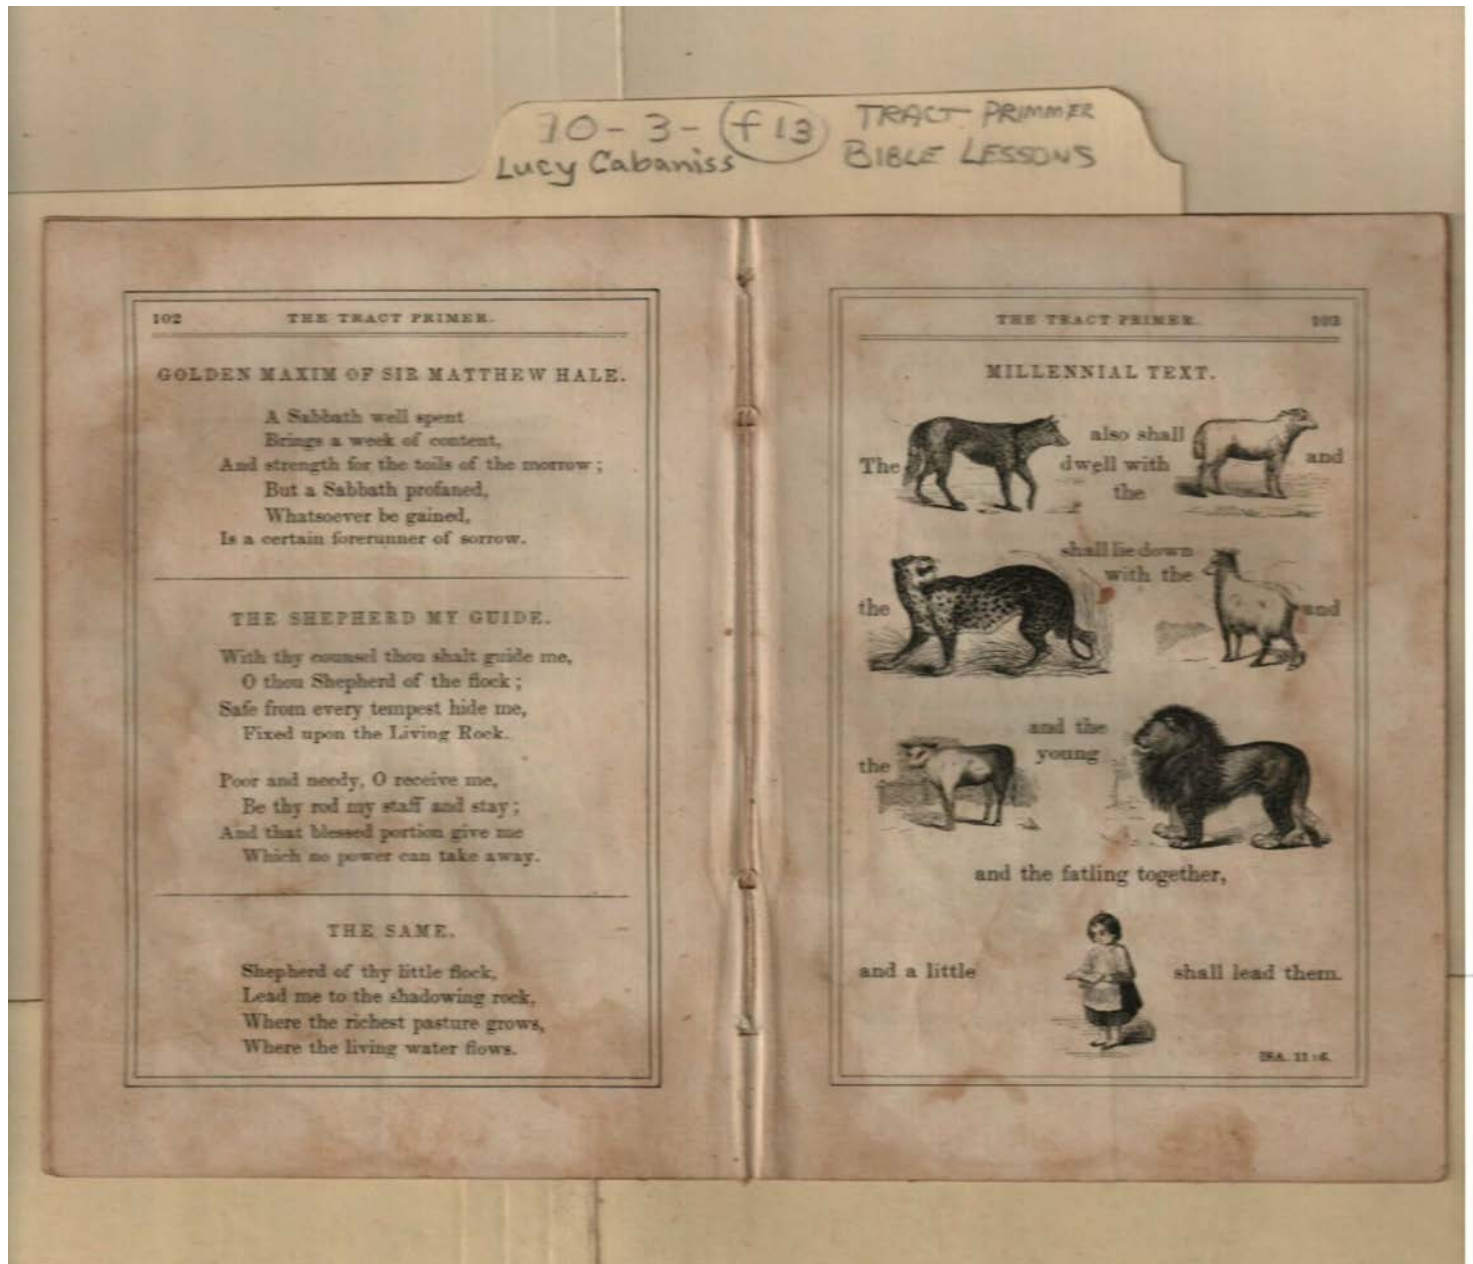 10-3-f13 TRACT PRIMMER
Lucy Cabaniss BIBLE LESSONS
102 THE TRACT PRIMER.
GOLDEN MAXIM OF SIR MATTHEW HALE.
A Sabbath well spent
Brings a week of content,
And strength for the toils of the morrow;
But a Sabbath profaned,
Whatsoever be gained,
Is a certain forerunner of sorrow.
THE SHEPHERD MY GUIDE.
With thy counsel thou shalt guide me,
O thou Shepherd of the flock;
Safe from every tempest hide me,
Fixed upon the Living Rock.
Poor and needy, O receive me,
Be thy rod my staff and stay;
And that blessed portion give me
Which no power can take away.
THE SAME.
Shepherd of thy little flock,
Lead me to the shadowing rock,
Where the richest pasture grows,
Where the living water flows.
THE TRACT PRIMER. 103
MILLENNIAL TEXT.
The also shall
dwell with
the and
the shall lie down
with the and
the and the
young
and the fatling together,
and a little shall lead them.
ISA. 11:6.